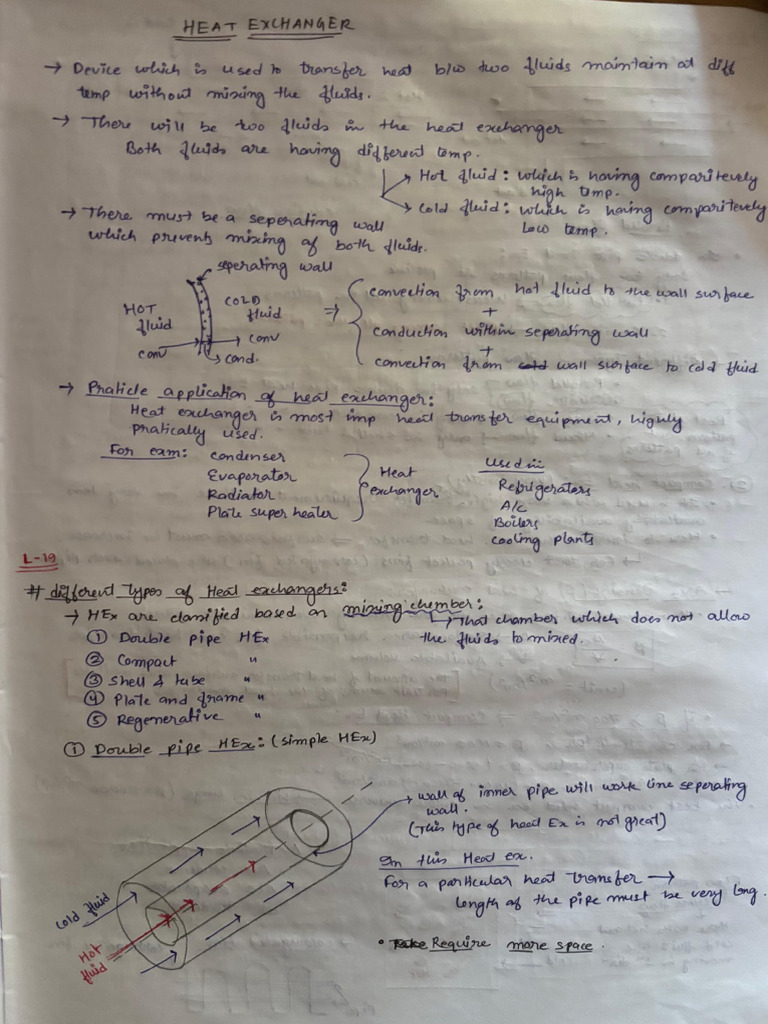 HEAT EXCHANGER
→ Device which is used to transfer heat b/w two fluids maintain at diff
temp without mixing the fluids.
→ There will be two fluids in the heat exchanger
Both fluids are having different temp.
→ Hot fluid : which is having comparitevely
high temp.
→ Cold fluid : which is having comparitevely
Low temp.
→ There must be a seperating wall
which prevents mixing of both fluids.
seperating wall
HOT
fluid
COLD
fluid
conv
conv
cond.
⇒ convection from hot fluid to the wall surface
+
conduction within seperating wall
+
convection from cold wall surface to cold fluid
→ Praticle application of heat exchanger :
Heat exchanger is most imp heat transfer equipment, highly
pratically used.
For exam : condenser
Evaporator
Radiator
Plate super heater
Heat
exchanger
Used in
Refrigerators
A/c
Boilers
cooling plants
L-19
# different types of Heat exchangers :
→ HEx are classified based on mixing chember :
→ That chamber which does not allow
the fluids to mixed.
① Double pipe HEx
② Compact "
③ Shell & tube "
④ Plate and frame "
⑤ Regenerative "
① Double pipe HEx : (simple HEx)
→ wall of inner pipe will work line seperating
wall.
(This type of heat Ex is not great)
In this Heat ex.
For a particular heat transfer →
length of the pipe must be very long.
• Take Require more space.
Cold fluid
Hot
fluid